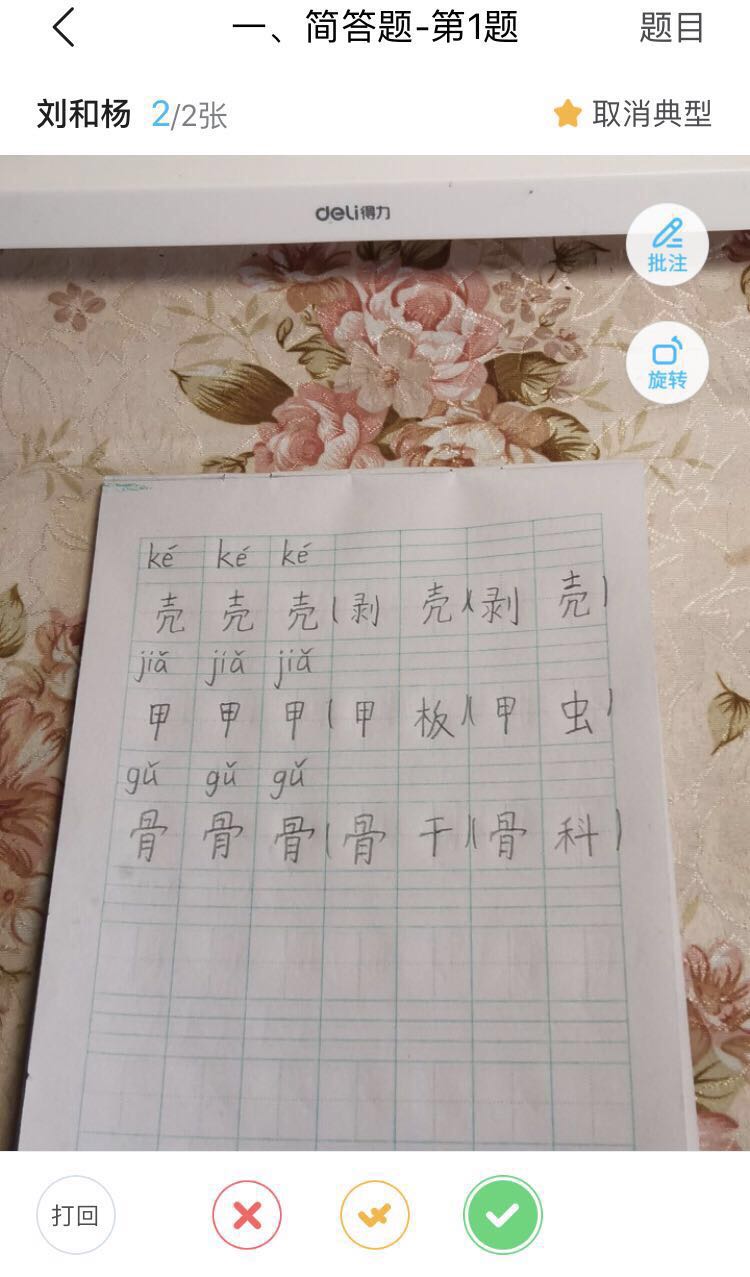 一、简答题-第1题 题目
刘和杨 2/2张 取消典型
deli得力
批注
旋转
ké ké ké
壳 壳 壳(剥 壳)(剥 壳)
jiǎ jiǎ jiǎ
甲 甲 甲(甲 板)(甲 虫)
gǔ gǔ gǔ
骨 骨 骨(骨 干)(骨 科)
打回